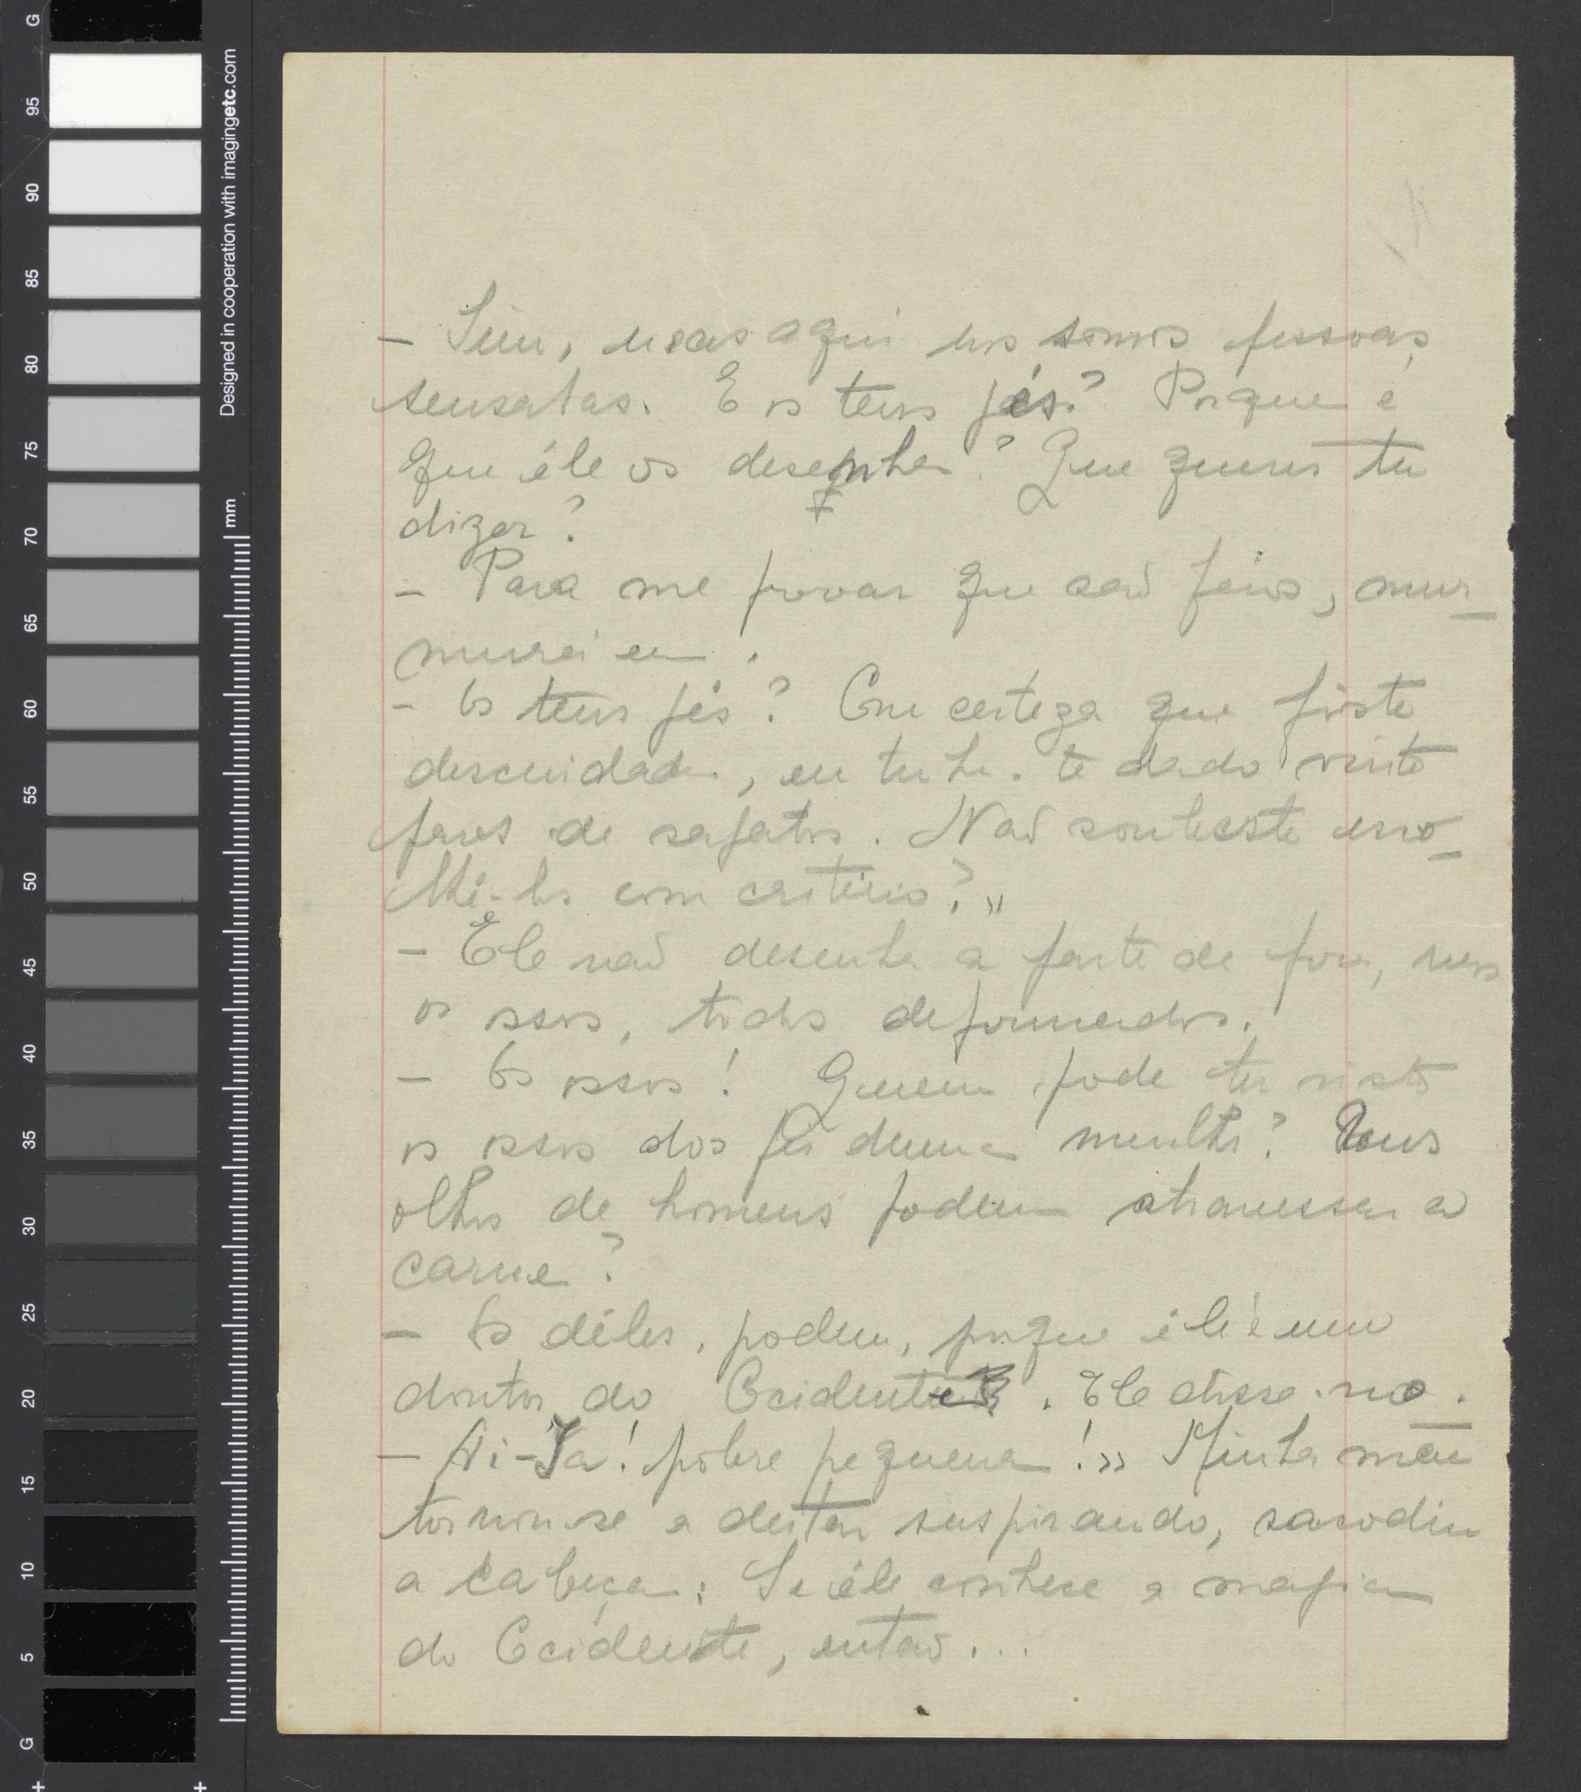 G
95
90
85
80
75
70
65
60
55
50
45
40
35
30
25
20
15
10
5
G
Designed in cooperation with imagingetc.com
mm
- Sim, mas aqui nós somos pessoas
sensatas. E os teus pés? Porque é
que êle os desenha? Que queres tu
dizer?
- Para me provar que são feios, mur-
murei eu.
- Os teus pés? Com certeza que foste
descuidada, eu tinha-te dado vinte
pares de sapatos. Não soubeste esco-
lhê-los com critério?»
- Ele não desenha a parte de fora, mas
os ossos, todos deformados.
- Os ossos! Quem pode ter visto
os ossos dos pés duma mulher? Uns
olhos de homens podem atravessar a
carne?
- Os dêles, podem, porque êle é um
doutor do Ocidente. Ele disse-mo.
- Ai-Ya! pobre pequena!» Minha mãe
tornou-se a deitar suspirando, sacodiu
a cabeça: Se êle conhece a magia
do Ocidente, então...